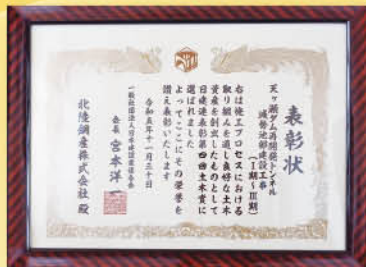 表彰状
天ヶ瀬ダム再開発トンネル
減勢池部建設工事
(Ⅰ期~Ⅲ期)
右は施工プロセスにおける
取り組みを通し良好な土木
資産を創出したものとして
日建連表彰第四回土木賞に
選ばれました
よってここにその栄誉を
讃え表彰いたします
令和五年十一月三十日
一般社団法人日本建設業連合会
会長 宮本洋一
北陸鋼産株式会社 殿